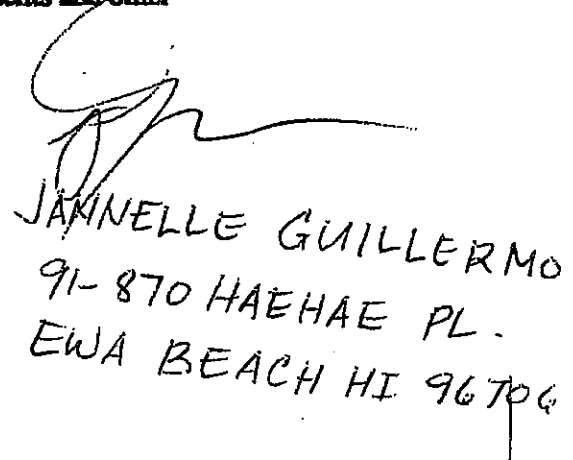 JANNELLE GUILLERMO
91-870 HAEHAE PL.
EWA BEACH HI 96706